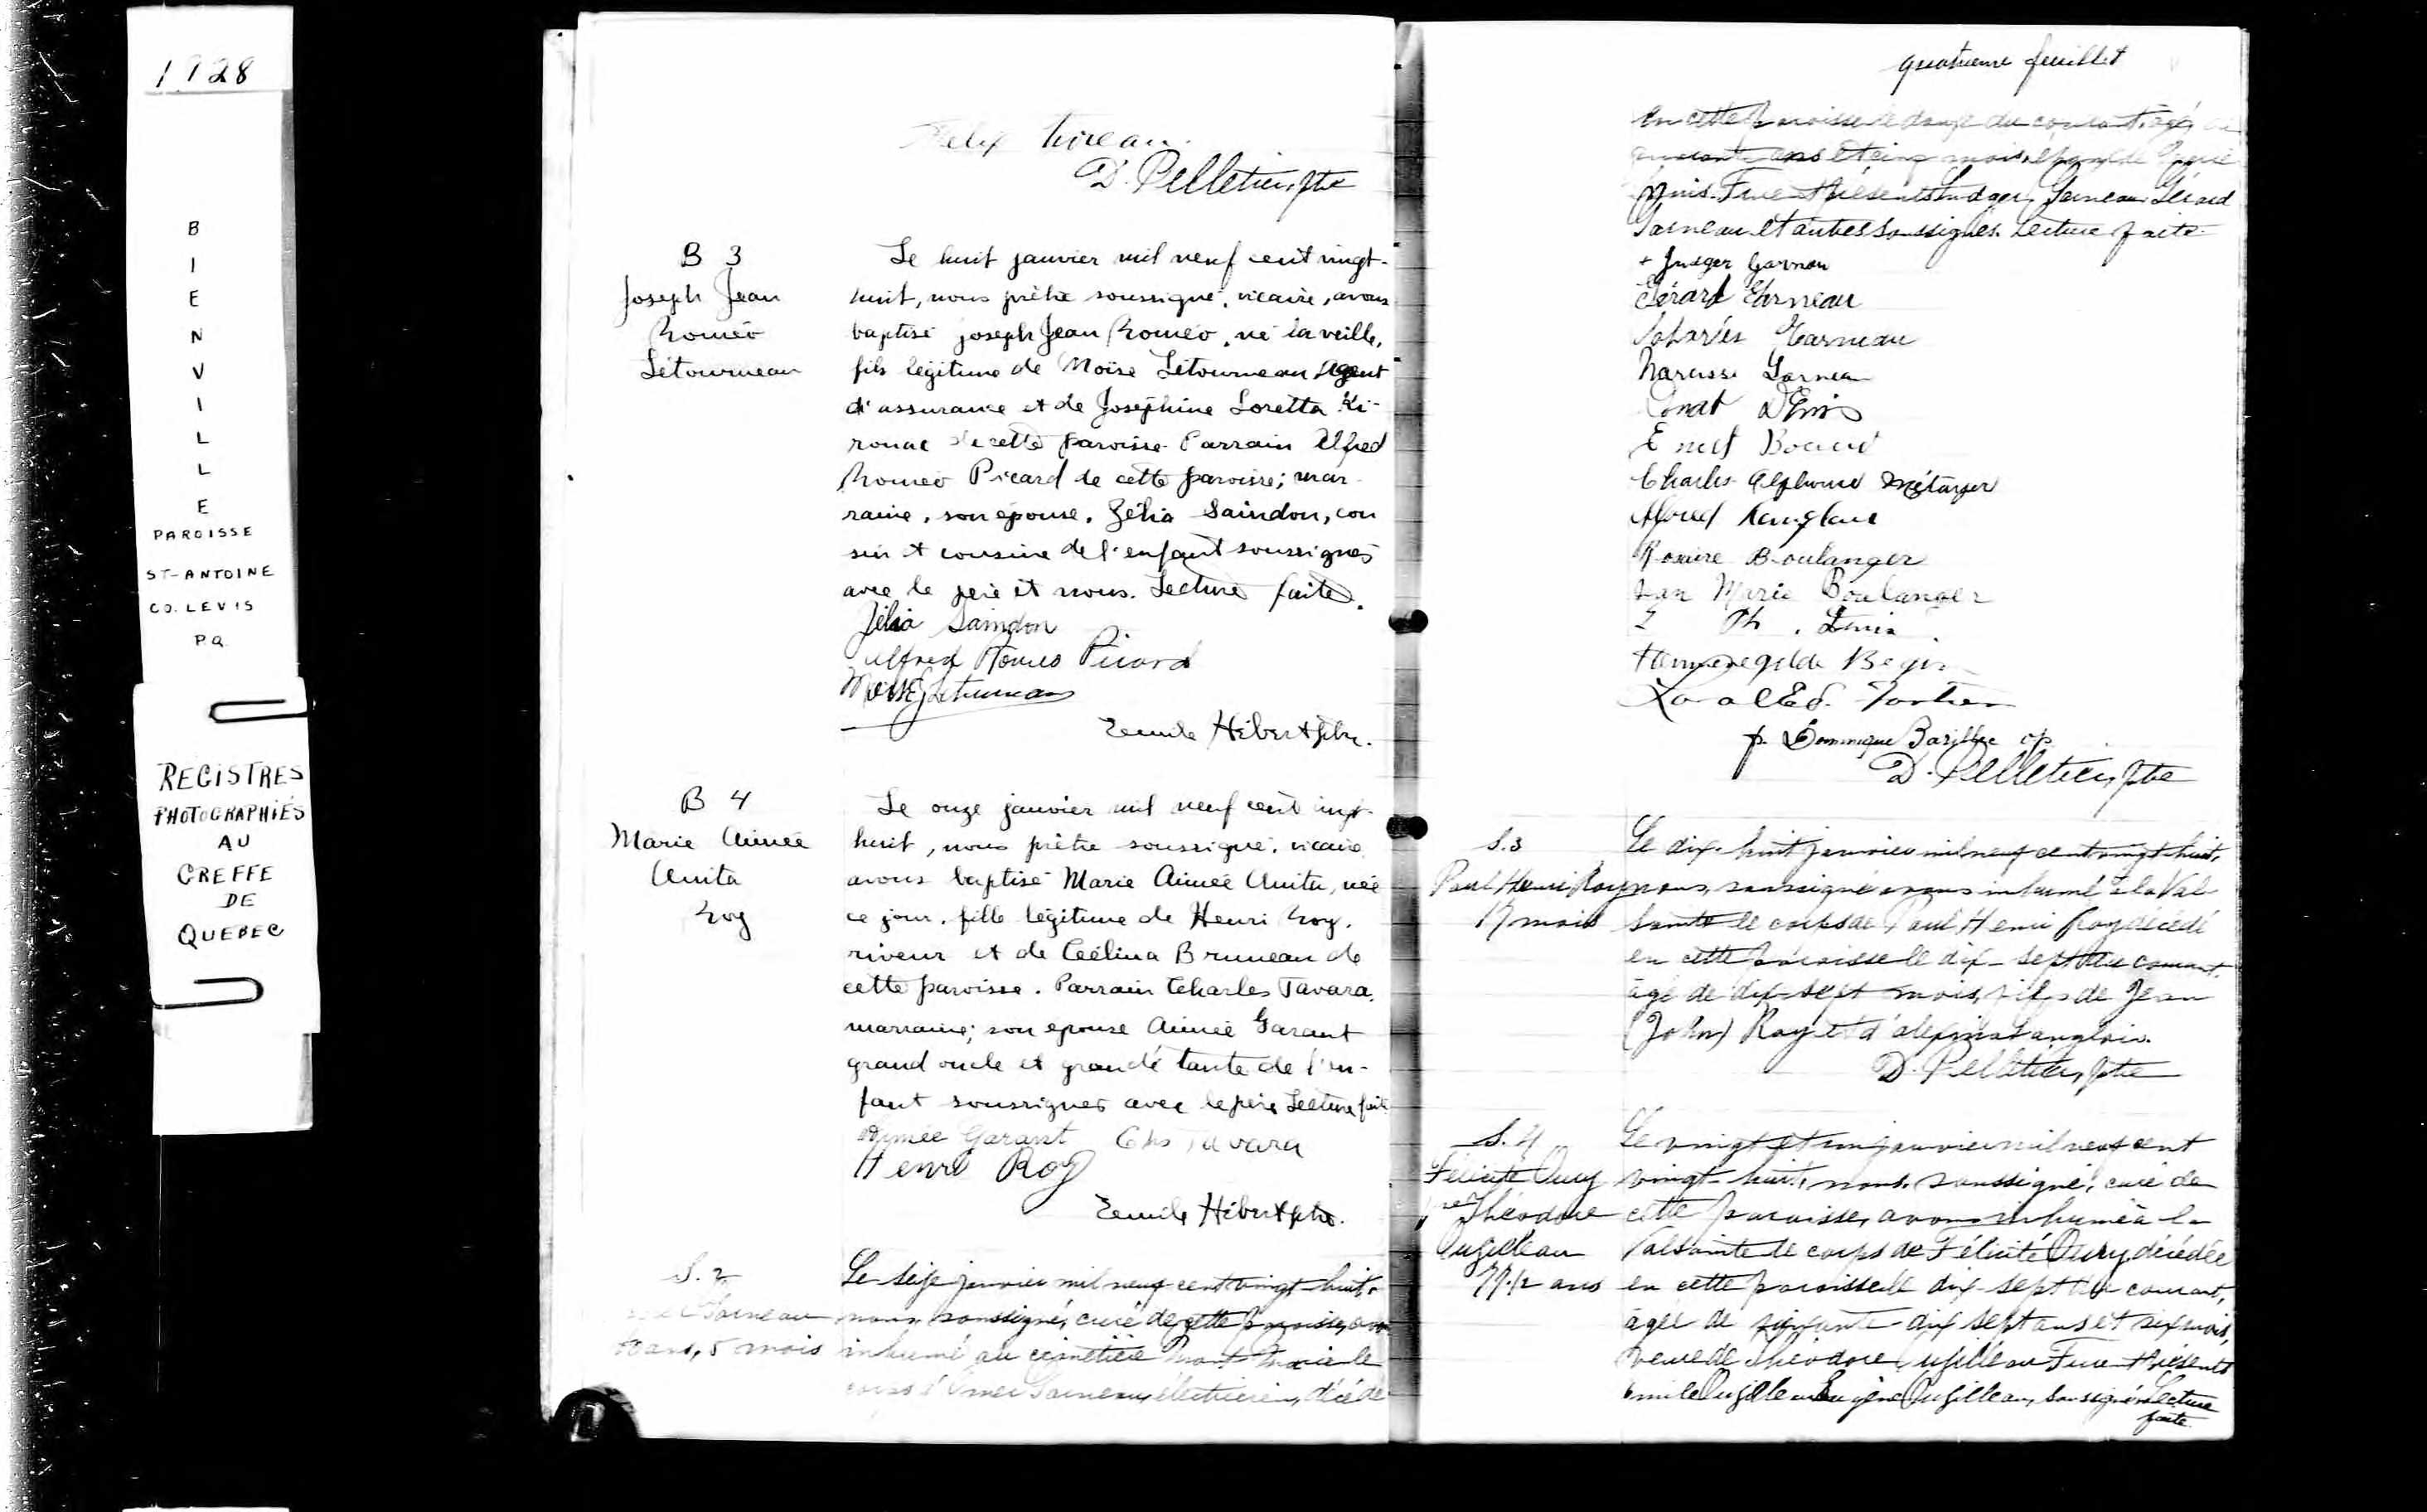 1928
B
I
E
N
V
I
L
L
E
PAROISSE
ST-ANTOINE
CO. LEVIS
P.Q.
REGISTRES
PHOTOGRAPHIÉS
AU
GREFFE
DE
QUEBEC
D. Pelletier, ptre
B 3
Joseph Jean
Roméo
Létourneau
Le huit janvier mil neuf cent vingt-
huit, nous prêtre soussigné, vicaire, avons
baptisé Joseph Jean Roméo, né la veille,
fils légitime de Moïse Létourneau Agent
d'assurance et de Joséphine Loretta Ki-
rouac de cette paroisse. Parrain Alfred
Roméo Picard de cette paroisse; mar-
raine, son épouse, Zélia Saindon, cou
sin et cousine de l'enfant soussignés
avec le père et nous. Lecture faite.
Zélia Saindon
Alfred Roméo Picard
Moïse Létourneau
Emile Hébert ptre.
B 4
Marie Aimée
Anita
Roy
Le onze janvier mil neuf cent vingt-
huit, nous prêtre soussigné, vicaire
avons baptisé Marie Aimée Anita, née
ce jour, fille légitime de Henri Roy,
riveur et de Célina Bruneau de
cette paroisse. Parrain Charles Tavara,
marraine; son epouse Aimée Garant
grand oncle et grande tante de l'en-
fant soussignés avec le père Lecture faite
Aymée Garant Chs Tavara
Henri Roy
Emile Hébert ptre.
S. 2
Garneau
ans, 5 mois
Le seize janvier mil neuf cent vingt-huit,
nous, soussigné, curé de cette paroisse, avons
inhumé au cimetière Mont Marie le
corps d'Omer Garneau, électricien, décédé
quatrieme feuillet
en cette paroisse le douze du courant, âgé de
ans et cinq mois, époux de
Denis. Furent présents Gérard
Garneau et autres soussignés. Lecture faite.
Garneau
Gérard Garneau
Charles Garneau
Narcisse Garneau
Denis
Charles Alphonse Métayer
Alfred Langlais
Rosaire Boulanger
Jean Marie Boulanger
Ph.
Hermenegilde Begin
D. Pelletier, ptre
S.3
Paul Henri Roy
17 mois
Le dix-huit janvier mil neuf cent vingt-huit,
nous, soussigné avons inhumé à la Val
Sainte le corps de Paul Henri Roy décédé
en cette paroisse le dix-sept du courant,
âgé de dix-sept mois, fils de Jean
(John) Roy et d'Alexina Langlois.
D. Pelletier, ptre
S. 4
Félicité Oury
Théodore
77 1/2 ans
Le vingt et un janvier mil neuf cent
vingt-huit, nous, soussigné, curé de
cette paroisse, avons inhumé à la
Valsainte le corps de Félicité Oury, décédée
en cette paroisse le dix-sept du courant,
âgée de soixante-dix sept ans et six mois,
veuve de Théodore Furent présents
Emile Eugène soussignés Lecture
faite.